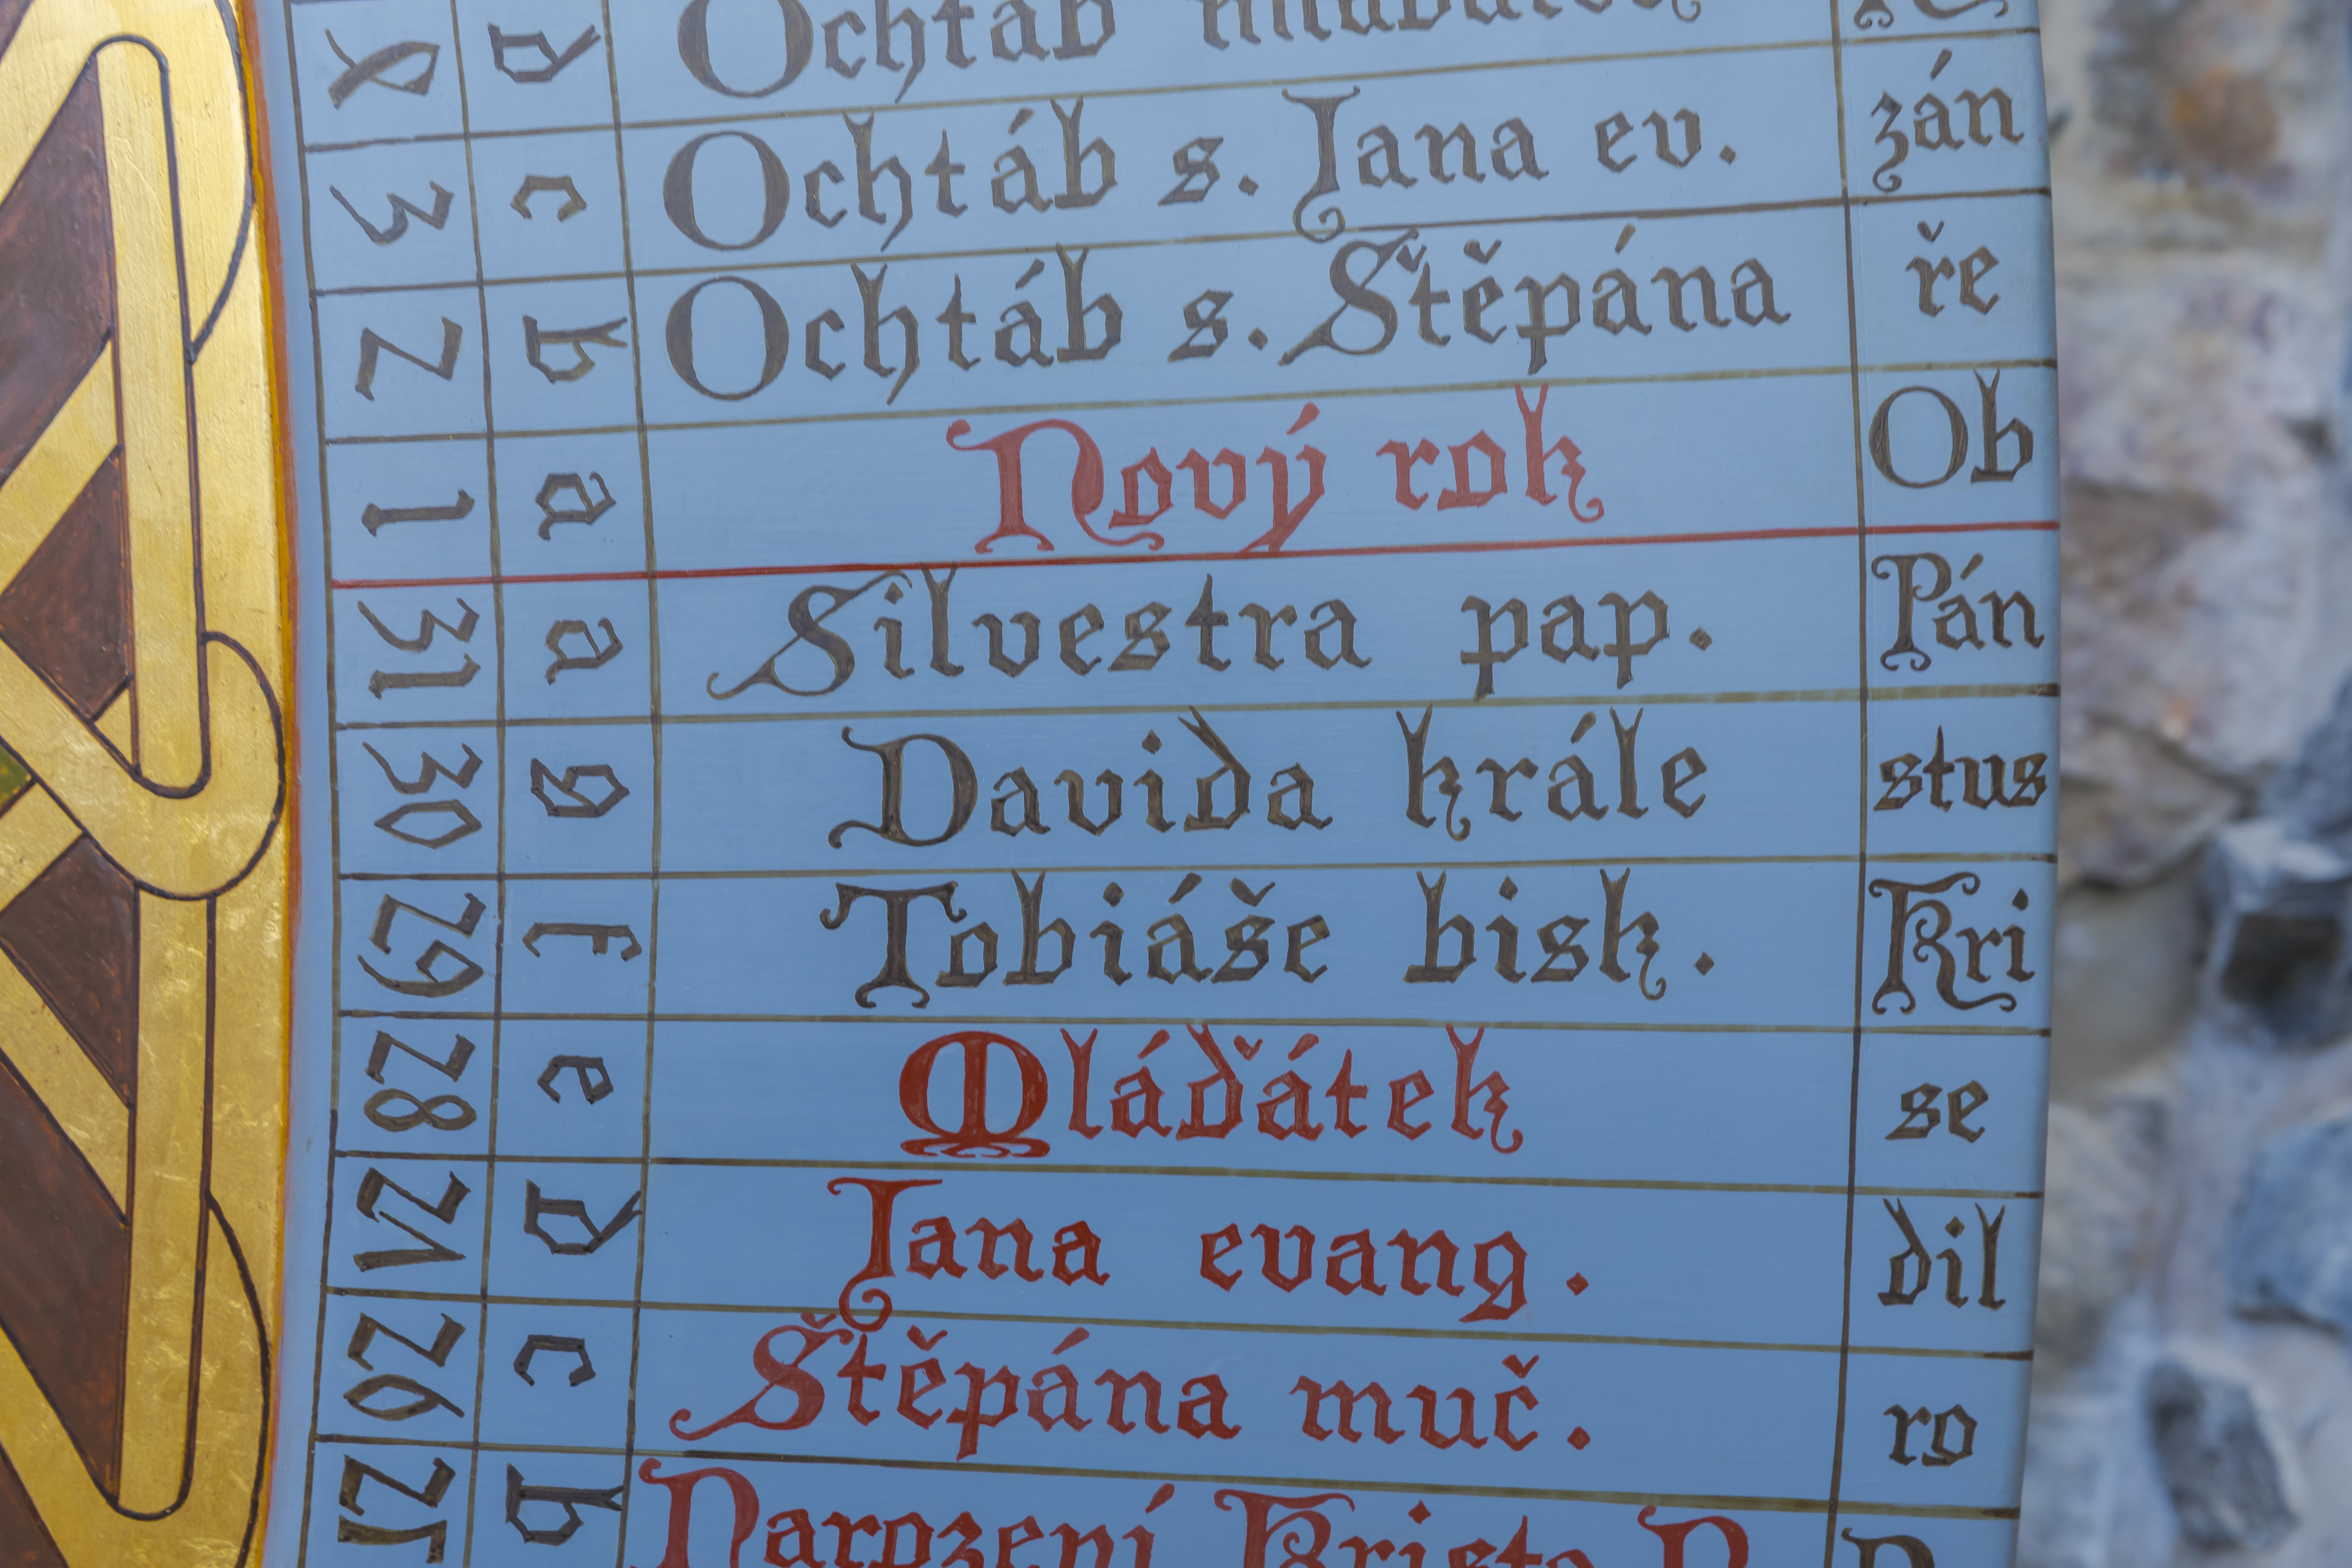 4 d Ochtáb mláďátek
3 c Ochtáb s. Jana ev. zán
2 b Ochtáb s. Štěpána ře
1 a Nový rok Ob
31 a Silvestra pap. Pán
30 g Davida krále stus
29 f Tobiáše bisk. Kri
28 e Mláďátek se
27 d Jana evang. dil
26 c Štěpána muč. ro
25 b Narození Krista P